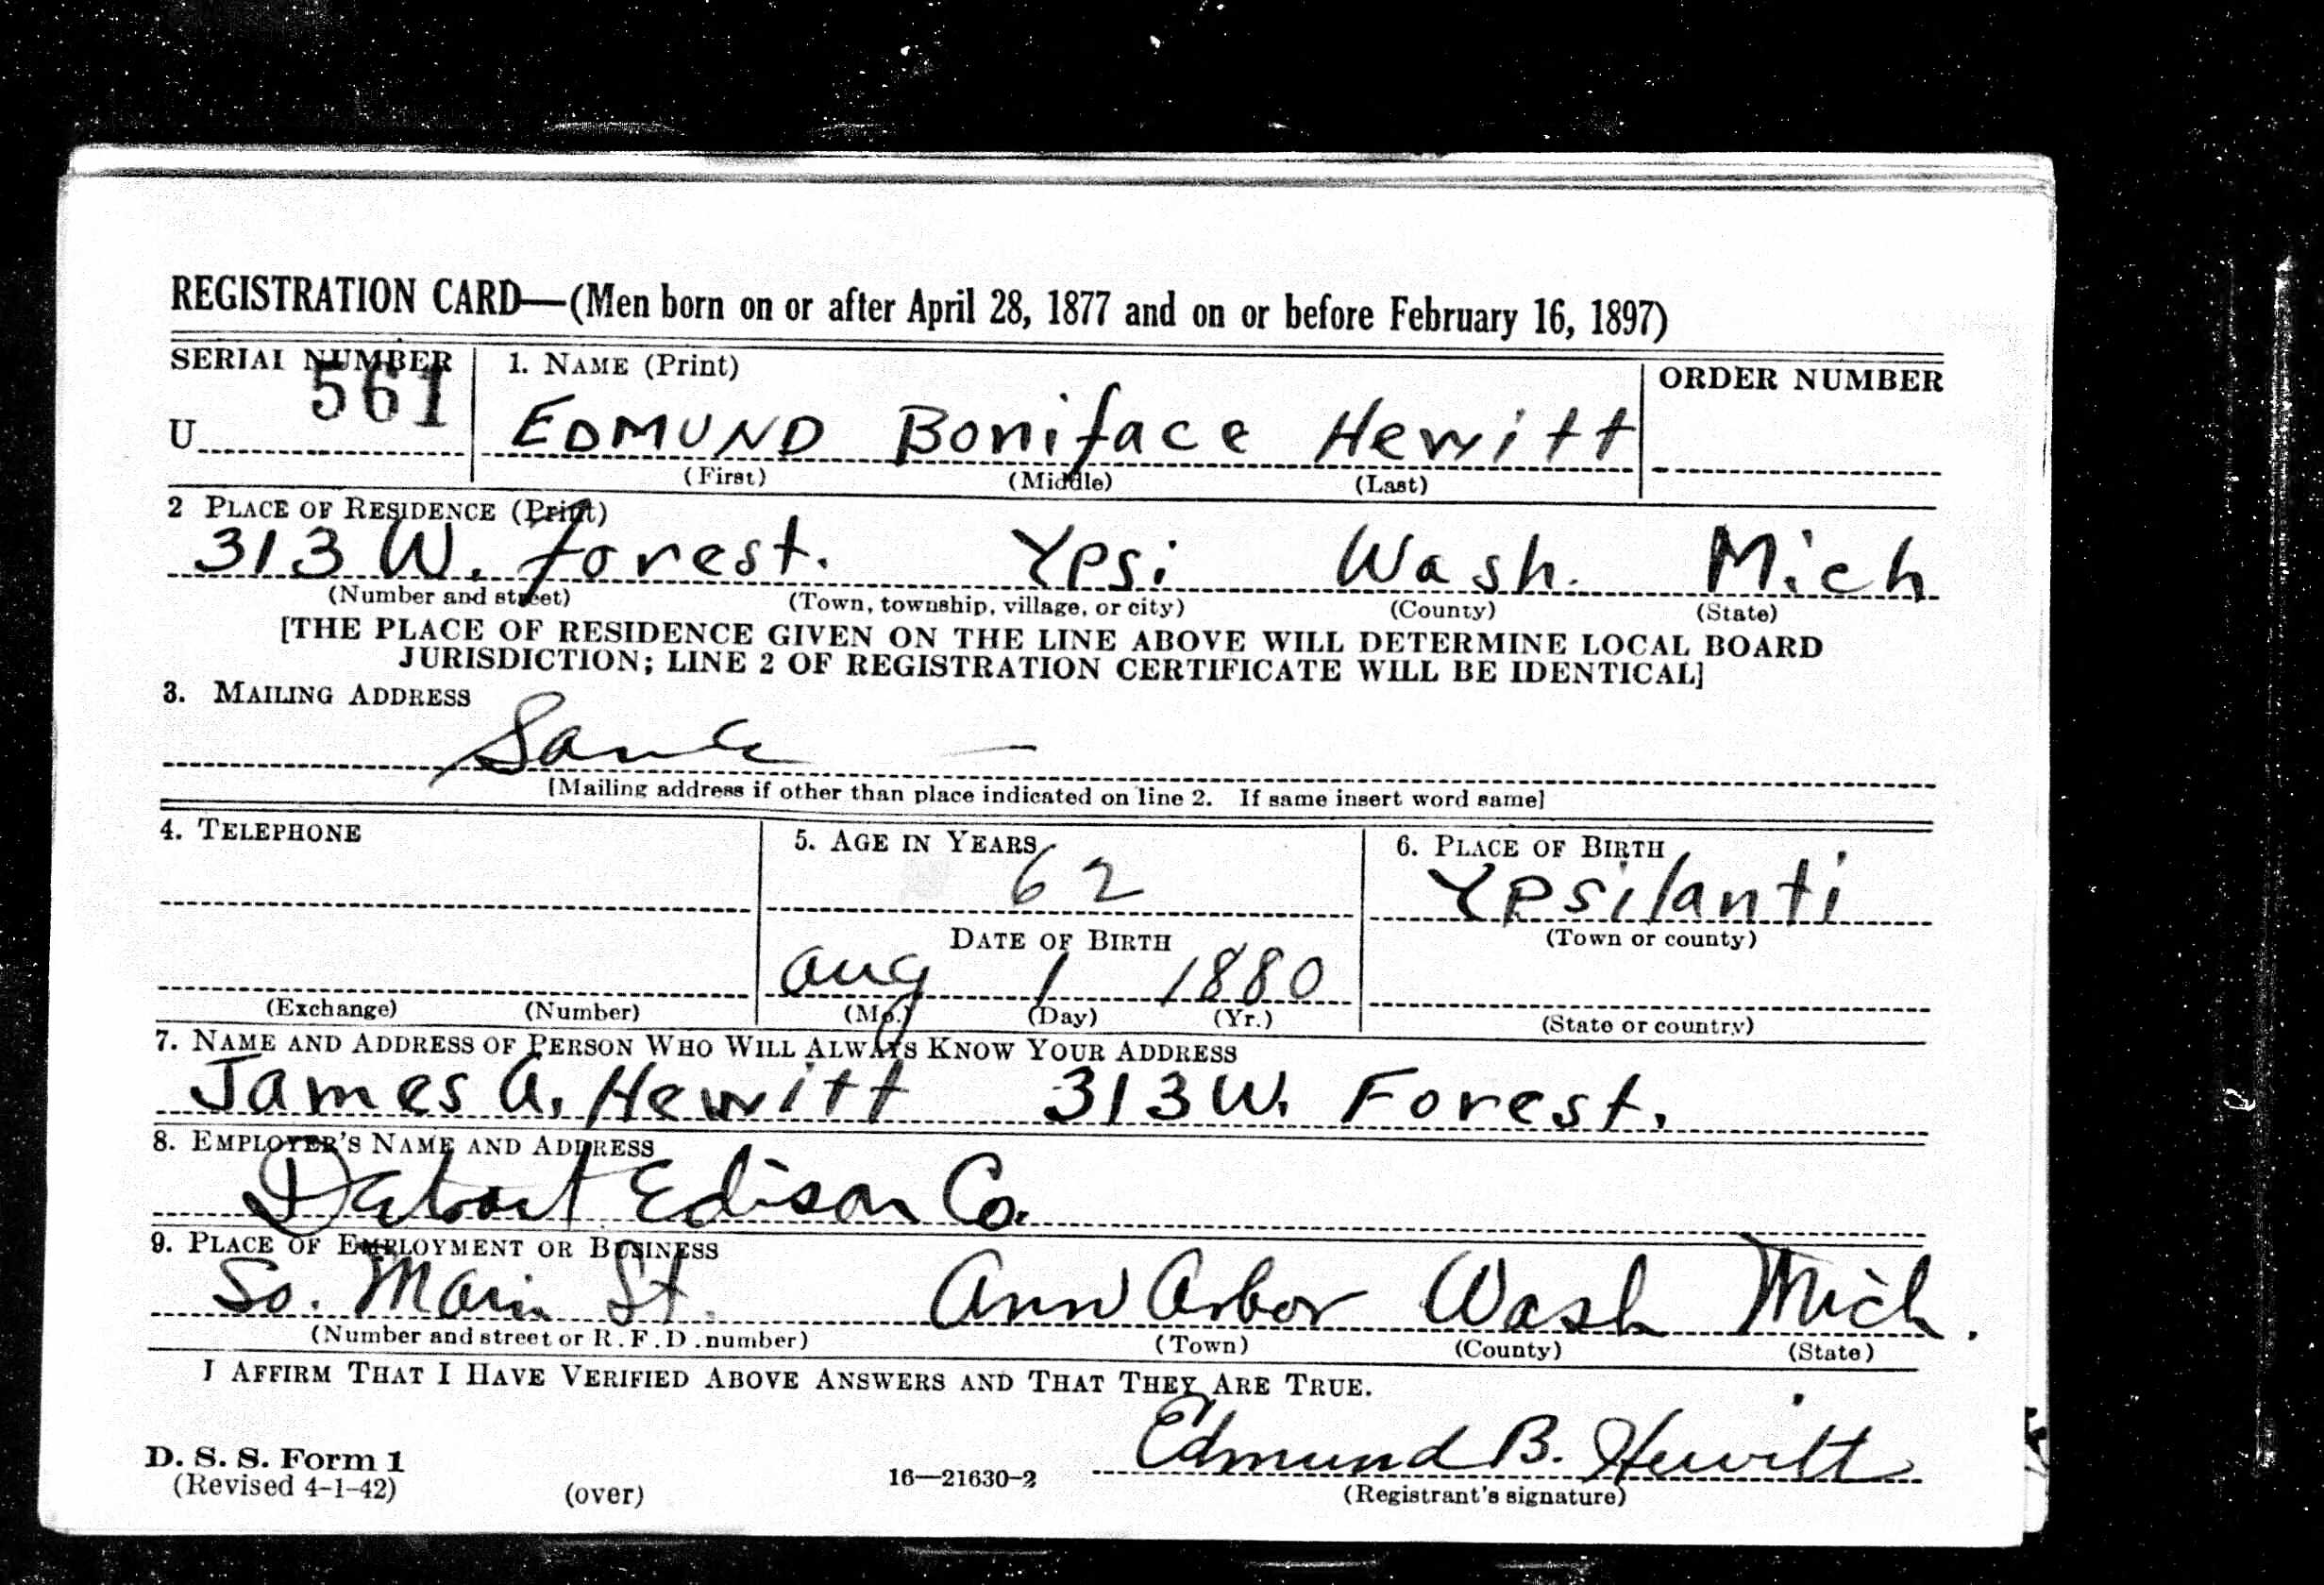 REGISTRATION CARD—(Men born on or after April 28, 1877 and on or before February 16, 1897)
SERIAL NUMBER 1. NAME (Print) ORDER NUMBER
U 561 EDMUND Boniface Hewitt
(First) (Middle) (Last)
2 PLACE OF RESIDENCE (Print)
313 W. forest. Ypsi Wash. Mich
(Number and street) (Town, township, village, or city) (County) (State)
[THE PLACE OF RESIDENCE GIVEN ON THE LINE ABOVE WILL DETERMINE LOCAL BOARD
JURISDICTION; LINE 2 OF REGISTRATION CERTIFICATE WILL BE IDENTICAL]
3. MAILING ADDRESS
Same
[Mailing address if other than place indicated on line 2. If same insert word same]
4. TELEPHONE 5. AGE IN YEARS 6. PLACE OF BIRTH
62 Ypsilanti
DATE OF BIRTH (Town or county)
Aug 1 1880
(Exchange) (Number) (Mo.) (Day) (Yr.) (State or country)
7. NAME AND ADDRESS OF PERSON WHO WILL ALWAYS KNOW YOUR ADDRESS
James A. Hewitt 313 W. Forest.
8. EMPLOYER'S NAME AND ADDRESS
Detroit Edison Co.
9. PLACE OF EMPLOYMENT OR BUSINESS
So. Main St. Ann Arbor Wash Mich.
(Number and street or R. F. D. number) (Town) (County) (State)
I AFFIRM THAT I HAVE VERIFIED ABOVE ANSWERS AND THAT THEY ARE TRUE.
Edmund B. Hewitt
D. S. S. Form 1
(Revised 4-1-42) (over) 16—21630-2 (Registrant's signature)